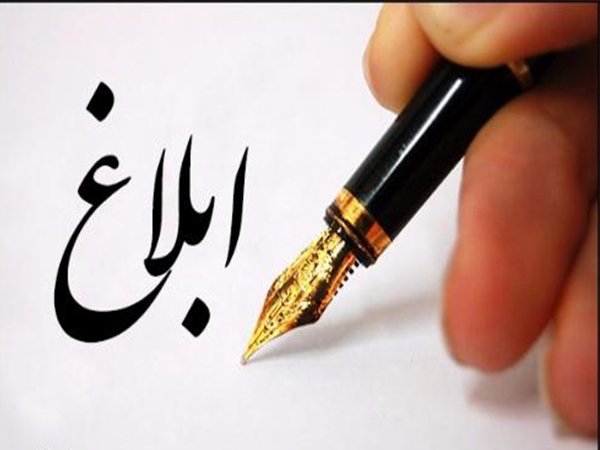 ابلاغ